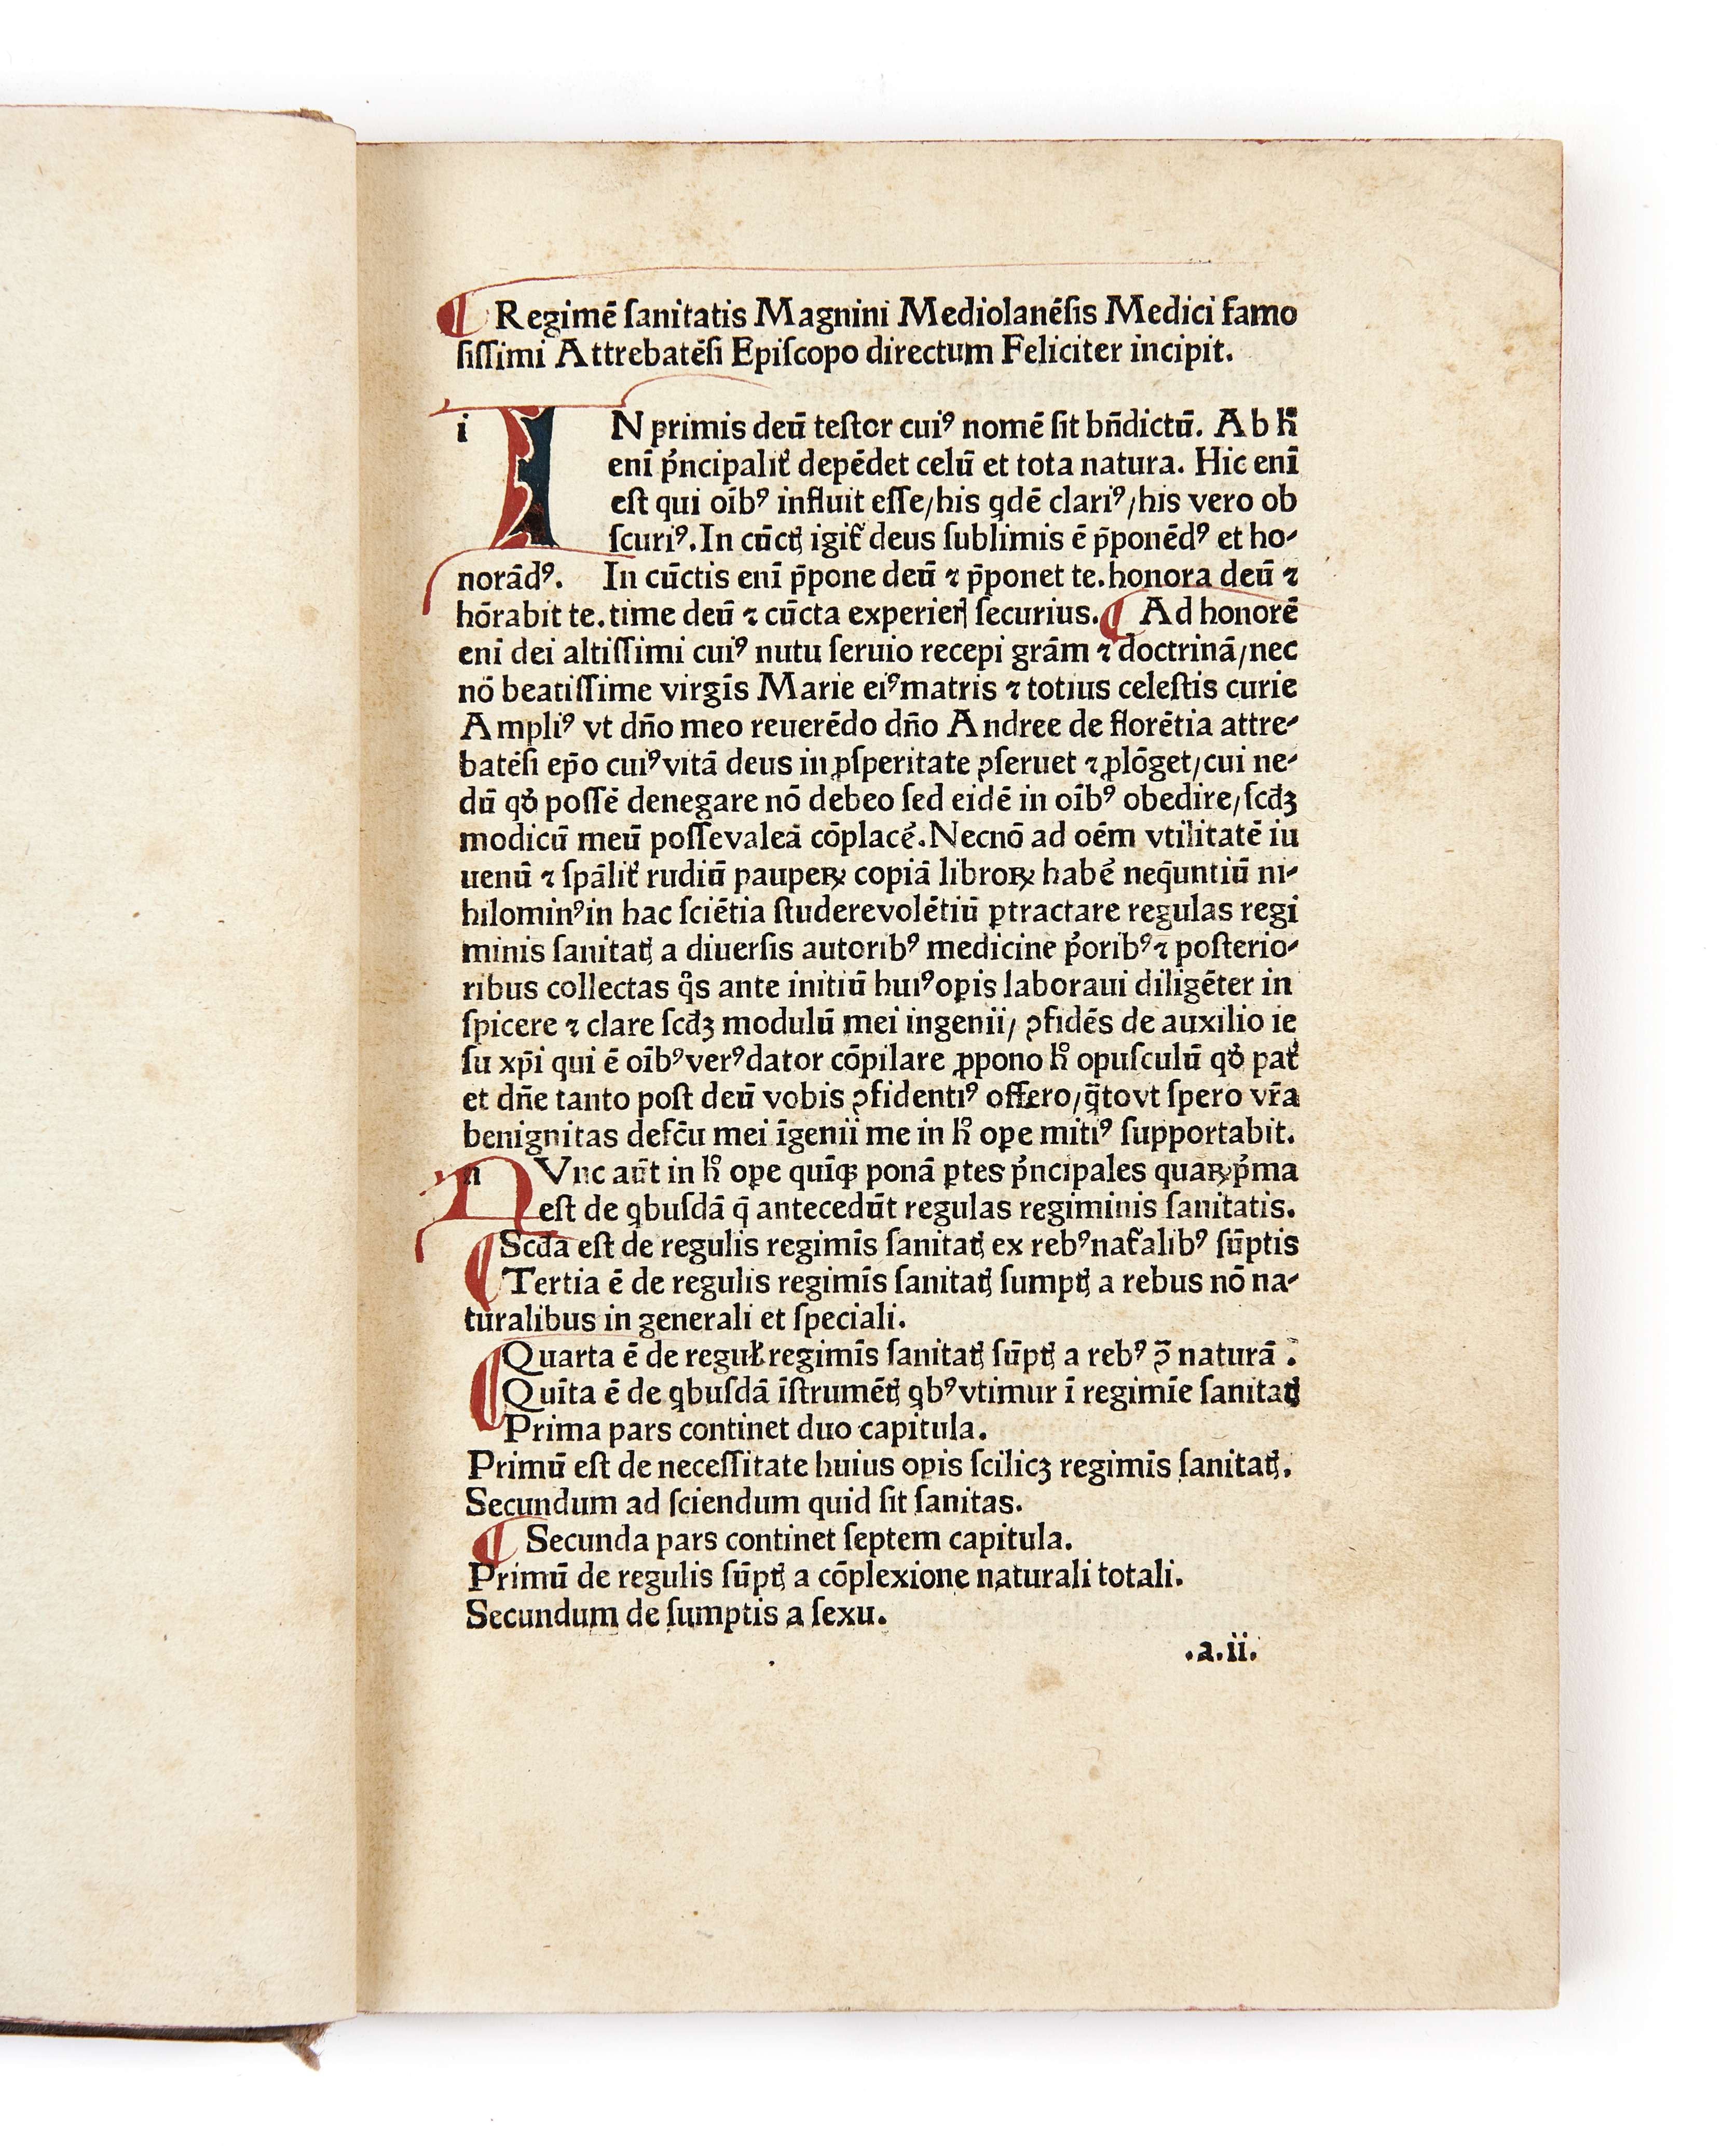 Regimē ſanitatis Magnini Mediolanēſis Medici famo
ſiſſimi Attrebatēſi Epiſcopo directum Feliciter incipit.
i IN primis deū teſtor cuiꝰ nomē ſit bñdictū. Ab h̄
enī pͥncipalit᷑ depēdet celū et tota natura. Hic enī
eſt qui oīb⁹ influit eſſe/his qdē clari⁹/his vero ob
ſcuri⁹. In cūctꝭ igit᷑ deus ſublimis ē p̄ponēd⁹ et ho⸗
norād⁹. In cūctis enī p̄pone deū ⁊ p̄ponet te. honora deū ⁊
hōrabit te. time deū ⁊ cūcta experierꝭ ſecurius. Ad honorē
enī dei altiſſimi cui⁹ nutu ſeruio recepi grām ⁊ doctrinā/nec
nō beatiſſime virgīs Marie ei⁹ matris ⁊ totius celeſtis curie
Ampli⁹ vt dño meo reuerēdo dño Andree de florētia attre⸗
batēſi ep̄o cui⁹ vitā deus in ꝓſperitate ꝯſeruet ⁊ ꝓlōget/cui ne⸗
dū qð poſſē denegare nō debeo ſed eidē in oīb⁹ obedire/ſcdꝫ
modicū meū poſſe valeā cōplacē. Necnō ad oēm vtilitatē iu
uenū ⁊ ſpālit᷑ rudiū pauperꝝ copiā librorꝝ habē neq̄untiū ni⸗
hilomin⁹ in hac ſciētia ſtudere volētiū ꝑtractare regulas regi
minis ſanitatꝭ a diuerſis autorib⁹ medicine pͥorib⁹ ⁊ poſterio⸗
ribus collectas qͣs ante initiū hui⁹ opis laboraui diligēter in
ſpicere ⁊ clare ſcdꝫ modulū mei ingenii/ ꝯfidēs de auxilio ie
ſu xp̄i qui ē oīb⁹ ver⁹ dator cōpilare ꝓpono hͦ opuſculū qð pat᷑
et dñe tanto poſt deū vobis ꝯfidenti⁹ offero/q̄to vt ſpero vr̄a
benignitas defc̄u mei īgenii me in hͦ oꝑe miti⁹ ſupportabit.
n Vnc aūt in hͦ oꝑe quīqꝫ ponā ꝑtes pͥncipales quarꝝ pͥma
eſt de qbuſdā q̄ antecedūt regulas regiminis ſanitatis.
Scda eſt de regulis regimīs ſanitatꝭ ex reb⁹ nat᷑alib⁹ ſūptis
Tertia ē de regulis regimīs ſanitatꝭ ſumptꝭ a rebus nō na⸗
turalibus in generali et ſpeciali.
Quarta ē de reguł regimīs ſanitatꝭ ſūptꝭ a reb⁹ ꝯ̄ naturā.
Quīta ē de qbuſdā īſtrumētꝭ qb⁹ vtimur ī regimīe ſanitatꝭ
Prima pars continet duo capitula.
Primū eſt de neceſſitate huius opis ſcilicꝫ regimīs ſanitatꝭ.
Secundum ad ſciendum quid ſit ſanitas.
Secunda pars continet ſeptem capitula.
Primū de regulis ſūptꝭ a cōplexione naturali totali.
Secundum de ſumptis a ſexu.
.a.ii.